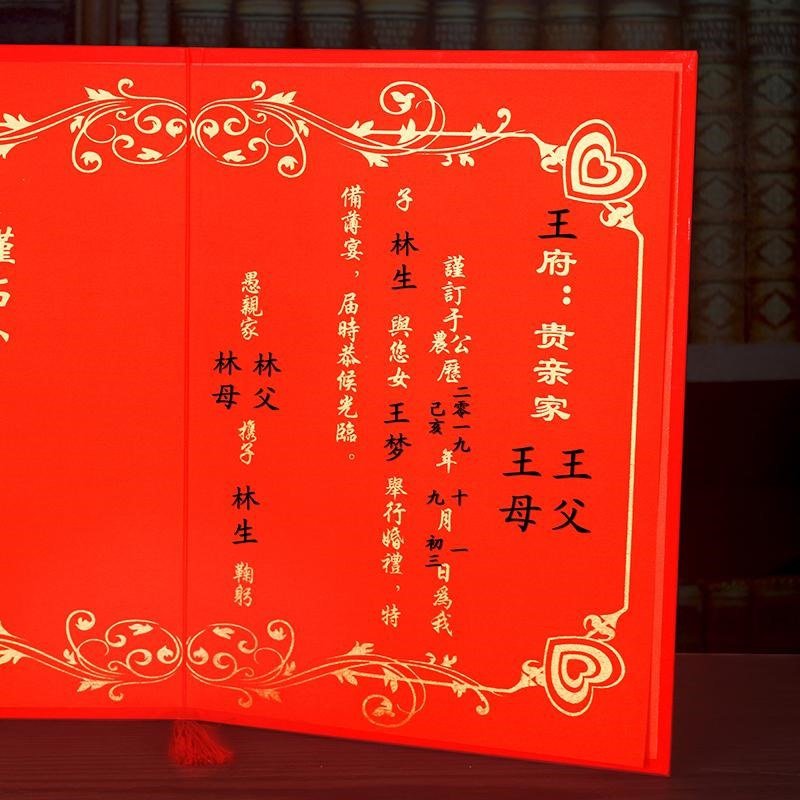 王府：贵亲家 王父 王母
謹訂于公農曆二零一九己亥年十九月一初三日為我
子林生與您女王梦舉行婚禮，特
備薄宴，届時恭候光臨。
愚親家 林父 林母 携子 林生 鞠躬